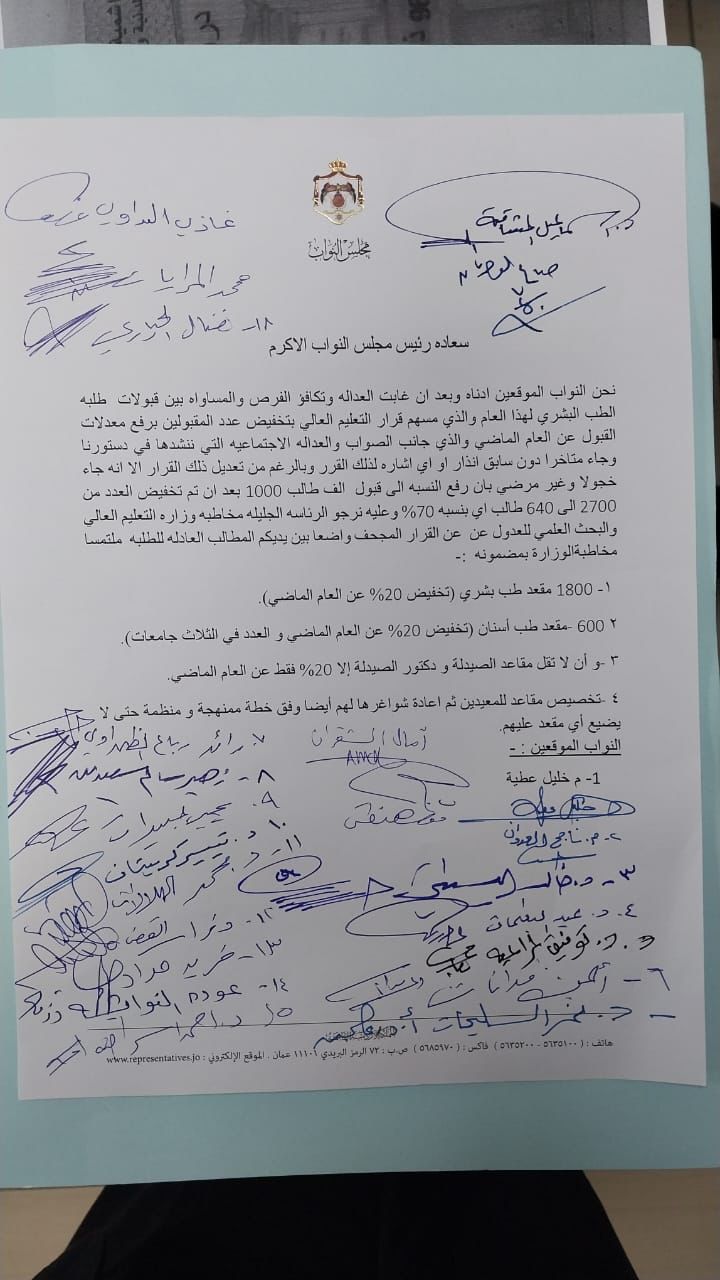 مجلس النواب
غازي البداوي
محمد المرايا
١٨- نضال الحياري
سعاده رئيس مجلس النواب الاكرم
نحن النواب الموقعين ادناه وبعد ان غابت العداله وتكافؤ الفرص والمساواه بين قبولات طلبه
الطب البشري لهذا العام والذي مسهم قرار التعليم العالي بتخفيض عدد المقبولين برفع معدلات
القبول عن العام الماضي والذي جانب الصواب والعداله الاجتماعيه التي ننشدها في دستورنا
وجاء متاخرا دون سابق انذار او اي اشاره لذلك القرر وبالرغم من تعديل ذلك القرار الا انه جاء
خجولا وغير مرضي بان رفع النسبه الى قبول الف طالب 1000 بعد ان تم تخفيض العدد من
2700 الى 640 طالب اي بنسبه 70% وعليه نرجو الرئاسه الجليله مخاطبه وزاره التعليم العالي
والبحث العلمي للعدول عن عن القرار المجحف واضعا بين يديكم المطالب العادله للطلبه ملتمسا
مخاطبةالوزارة بمضمونه :-
١- 1800 مقعد طب بشري (تخفيض 20% عن العام الماضي).
٢ 600 -مقعد طب أسنان (تخفيض 20% عن العام الماضي و العدد في الثلاث جامعات).
٣ -و أن لا تقل مقاعد الصيدلة و دكتور الصيدلة إلا 20% فقط عن العام الماضي.
٤ -تخصيص مقاعد للمعيدين ثم اعادة شواغرها لهم أيضا وفق خطة ممنهجة و منظمة حتى لا
يضيع أي مقعد عليهم.
النواب الموقعين : -
1- م خليل عطية
٢- م. ناجح العدوان
٣- د. خالد
٤- د. عبد
د. توفيق المراعية
٦- أيمن مدانات
آمال الشقران
٧- رائد رباع الظهراوي
٨- زهير
٩- يحيى عبيدات
١٠- د. تيسير كريشان
١١- د. محمد الهلالات
١٢-
١٣- فريد حداد
١٤- عودة النوايشة
١٥- د. احمد
هاتف : ( ٥٦٣٥١٠٠ - ٥٦٣٥٢٠٠ ) فاكس : ( ٥٦٨٥٩٧٠ ) ص.ب : ٧٢ الرمز البريدي ١١١٠١ عمان . الموقع الإلكتروني : www.representatives.jo